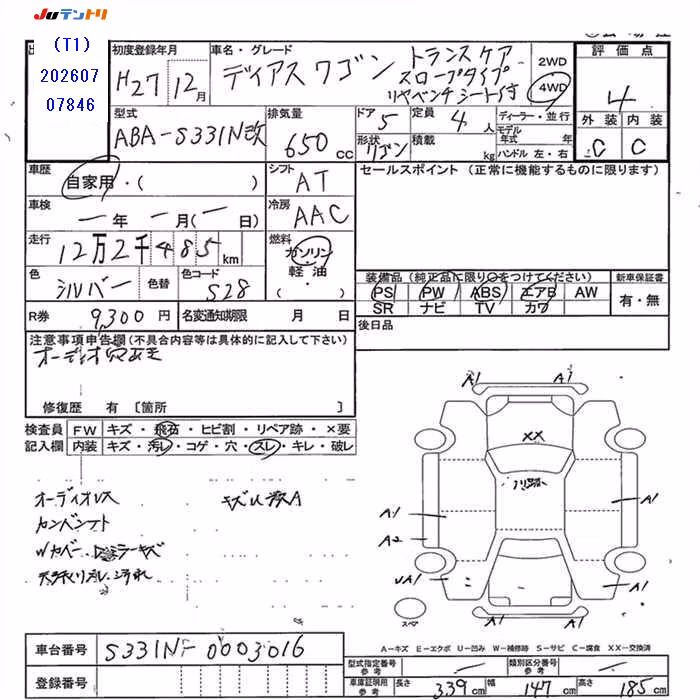 JUテントリ
(T1)
202607
07846
初度登録年月
H27 12月
車名・グレード
ディアスワゴン トランスケア
スロープタイプ
リヤベンチシート付
2WD
4WD
評価点
4
外装 内装
C C
型式
ABA-S331N改
排気量
650 cc
ドア 5
定員 4 人
形状 ワゴン
積載 kg
ディーラー・並行
モデル年式 年
ハンドル 左・右
車歴
自家用・( )
シフト AT
車検
ー年 ー月(ー日)
冷房 AAC
走行
12万2千485km
燃料
ガソリン・
軽油
( )
色
シルバー
色替
色コード
S28
R券 9,300円
名変通知期限 月 日
セールスポイント (正常に機能するものに限ります)
装備品(純正品に限り○をつけてください)
PS PW ABS エアB AW
SR ナビ TV カワ
新車保証書
有・無
後日品
注意事項申告欄(不具合内容等は具体的に記入して下さい)
修復歴 有 [箇所 ]
検査員
記入欄
FW キズ・飛石・ヒビ割・リペア跡・×要
内装 キズ・汚レ・コゲ・穴・スレ・キレ・破レ
オーディオレス
A1 A1
XX
A1
A1
A2
A1
スペア
A-キズ E-エクボ U-凹み W-補修跡 S-サビ C-腐食 XX-交換済
車台番号 S331NF-0003016
登録番号
型式指定番号 参考 ー
類別区分番号 参考 ー
車庫証明用 参考 長さ 339cm 幅 147cm 高さ 185cm